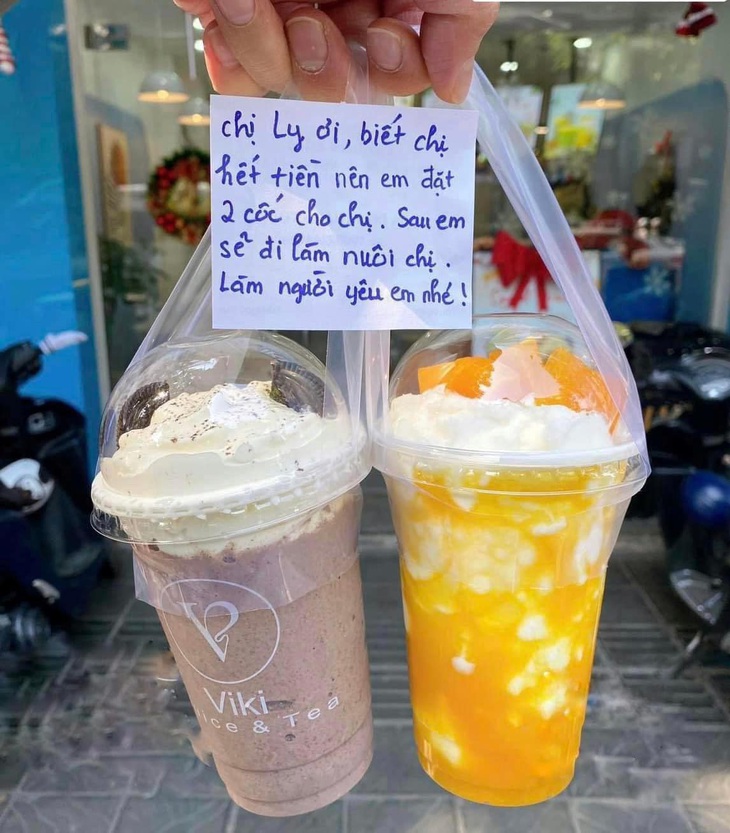 chị Ly ơi, biết chị
hết tiền nên em đặt
2 cốc cho chị. Sau em
sẽ đi làm nuôi chị.
Làm người yêu em nhé!
Viki
ice & Tea